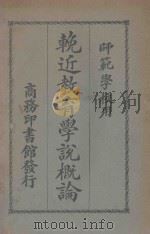 師範學校用
輓近教育學說概論
商務印書館發行